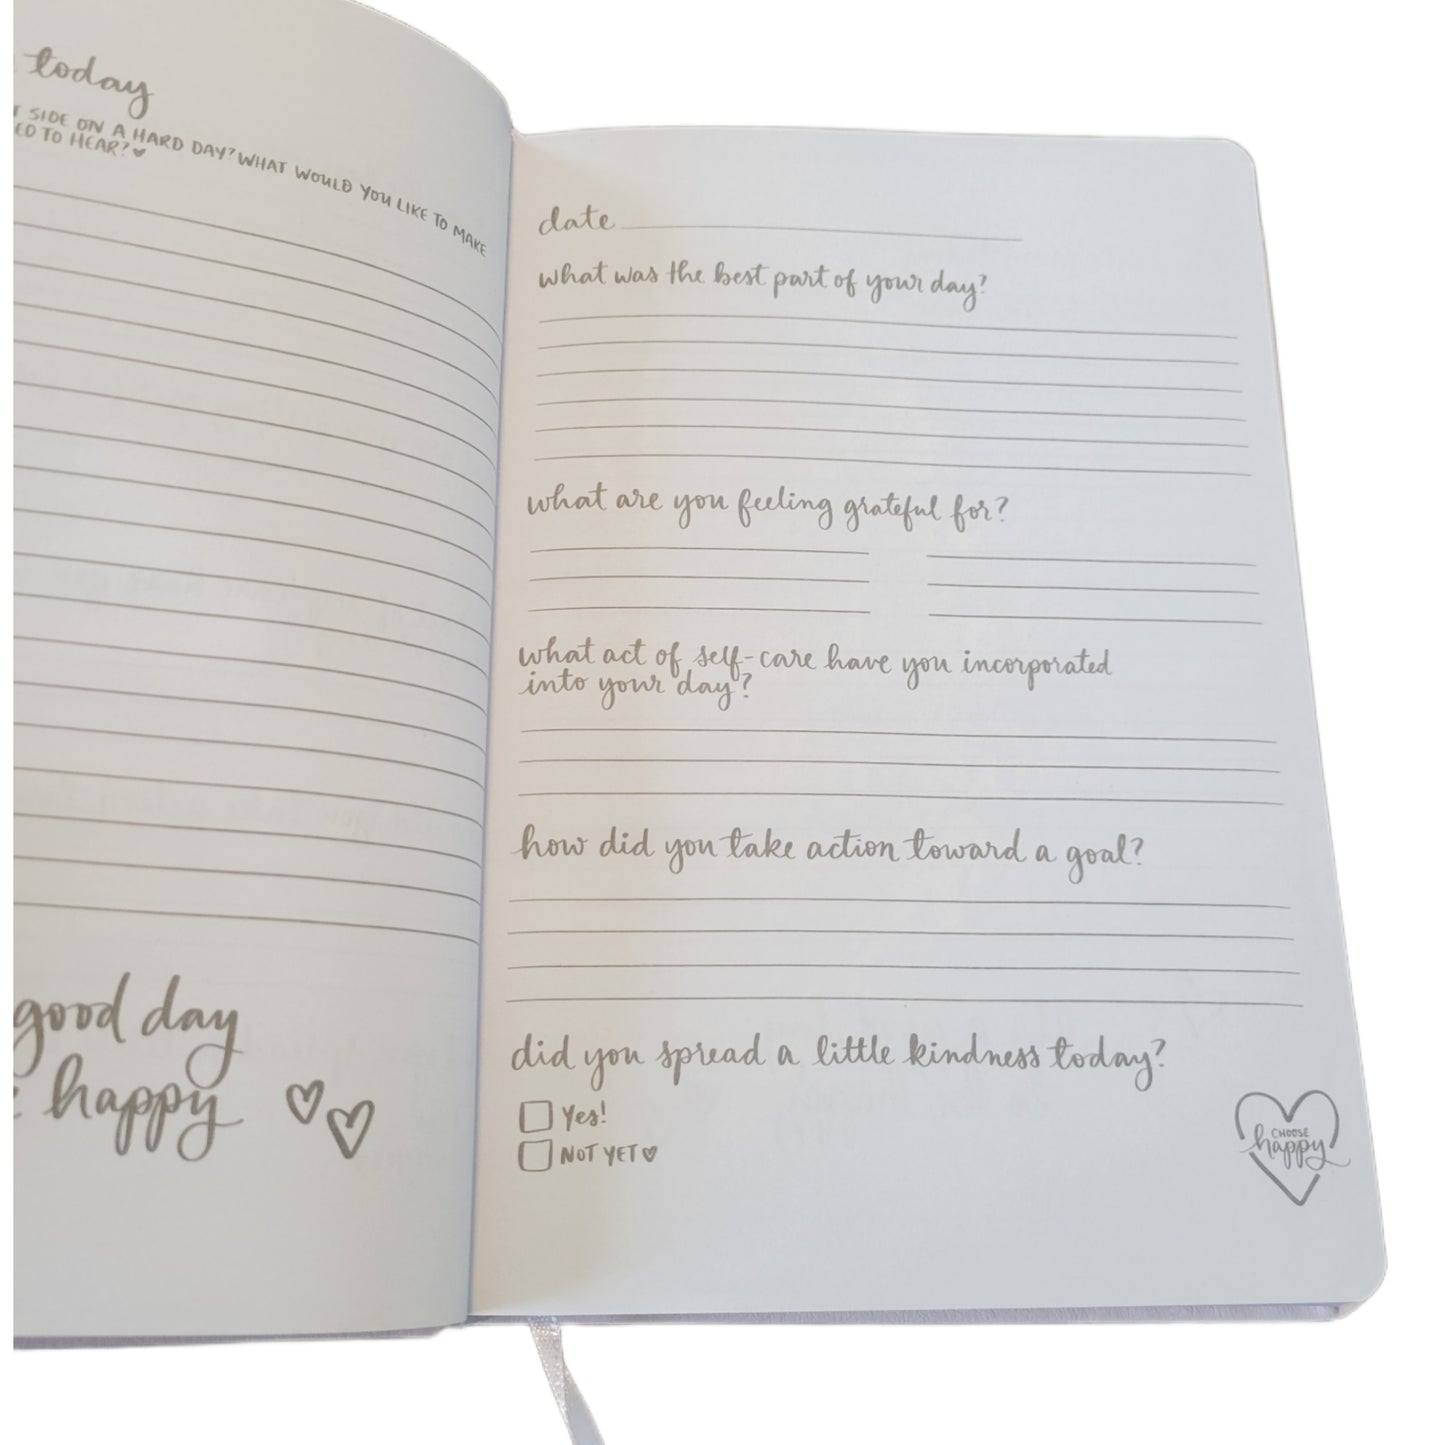 today
SIDE ON A HARD DAY? WHAT WOULD YOU LIKE TO MAKE
TO HEAR?
good day
happy
date
what was the best part of your day?
what are you feeling grateful for?
what act of self-care have you incorporated
into your day?
how did you take action toward a goal?
did you spread a little kindness today?
Yes!
NOT YET
CHOOSE
happy